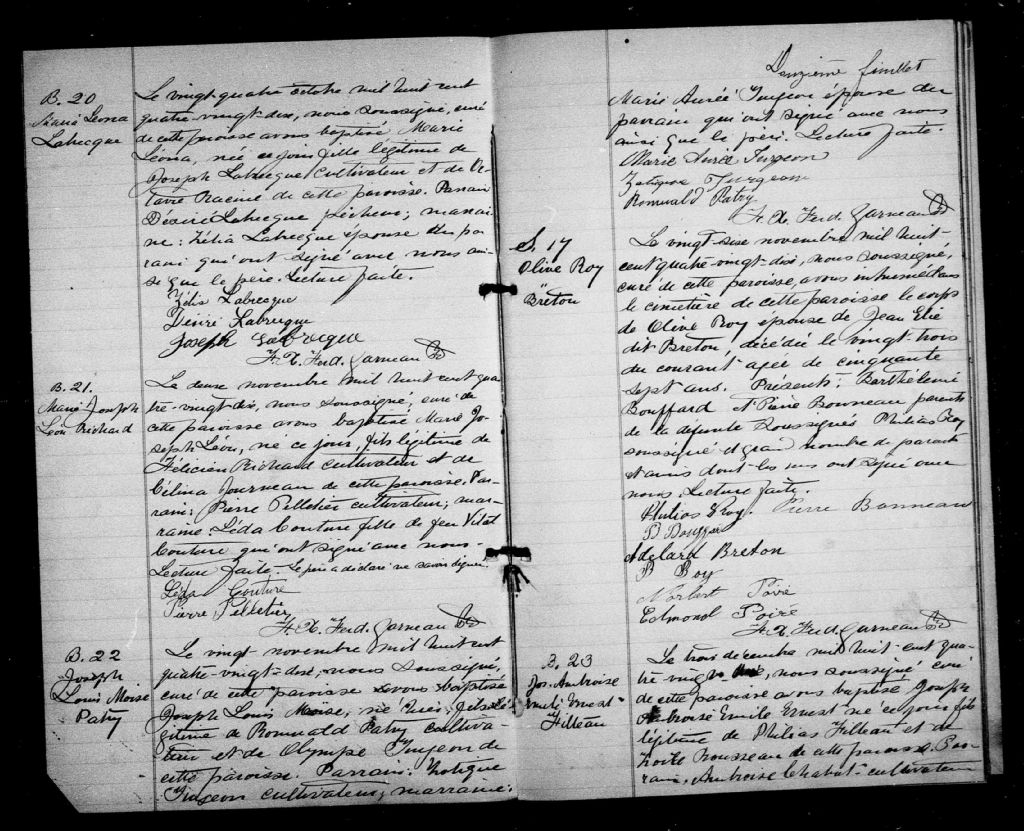 B. 20
Marie Léonia
Labecque
Le vingt-quatre octobre mil huit cent
quatre-vingt-dix, nous soussigné, curé
de cette paroisse avons baptisé Marie
Léonia, née ce jour, fille légitime de
Joseph Labrecque, cultivateur et de
Racine de cette paroisse. Parrain
Désiré Labrecque pêcheur; marrai-
ne: Zélia Labrecque épouse du pa-
rain qui ont signé avec nous ain-
si que le père. Lecture faite.
Zélia Labrecque
Désiré Labrecque
Joseph Labrecque
F. X. Ferd. Garneau Ptr
B. 21.
Marie Joseph
Léon Richard
Le douze novembre mil huit cent qua-
tre-vingt-dix, nous soussigné, curé de
cette paroisse avons baptisé Marie Jo-
seph Léon, né ce jour, fils légitime de
Félicien Richard cultivateur et de
Célina Journeau de cette paroisse. Par-
rain: Pierre Pelletier cultivateur; mar-
raine: Léda Couture fille de feu Vital
Couture qui ont signé avec nous.
Lecture faite. Le père a déclaré ne savoir signer.
Léda Couture
Pierre Pelletier
F. X. Ferd. Garneau Ptr
B. 22
Joseph
Louis Moïse
Patry
Le vingt novembre mil huit cent
quatre-vingt-dix, nous soussigné,
curé de cette paroisse avons baptisé
Joseph Louis Moïse, né hier, fils lé-
gitime de Romuald Patry cultiva-
teur et de Olympe Turgeon de
cette paroisse. Parrain: Zotique
Turgeon cultivateur; marraine:
Deuxième feuillet
Marie Aurée Turgeon épouse du
parrain qui ont signé avec nous
ainsi que le père. Lecture faite.
Marie Aurée Turgeon
Zotique Turgeon
Romuald Patry
F. X. Ferd. Garneau Ptr
S. 17
Olive Roy
"
Breton
Le vingt-six novembre mil huit
cent quatre-vingt-dix, nous soussigné,
curé de cette paroisse, avons inhumé dans
le cimetière de cette paroisse le corps
de Olive Roy épouse de Jean Elie
dit Breton, décédée le vingt trois
du courant agée de cinquante
sept ans. Présents: Barthélemi
Bouffard et Pierre Bonneau parents
de la défunte soussignés Philias Roy
soussigné et grand nombre de parents
et amis dont les uns ont signé avec
nous. Lecture faite.
Philias Roy. Pierre Bonneau
B Bouffard
Adélard Breton
B Roy
Norbert Poiré
Edmond Poiré
F. X. Ferd. Garneau Ptr
B. 23
Jos. Ambroise
Emile Ernest
Filteau
Le trois décembre mil huit-cent qua-
tre vingt dix, nous soussigné curé
de cette paroisse avons baptisé Joseph
Ambroise Emile Ernest né ce jour fils
légitime de Philias Filteau et de
Rousseau de cette paroisse. Par-
rain, Ambroise Chabot cultivateur